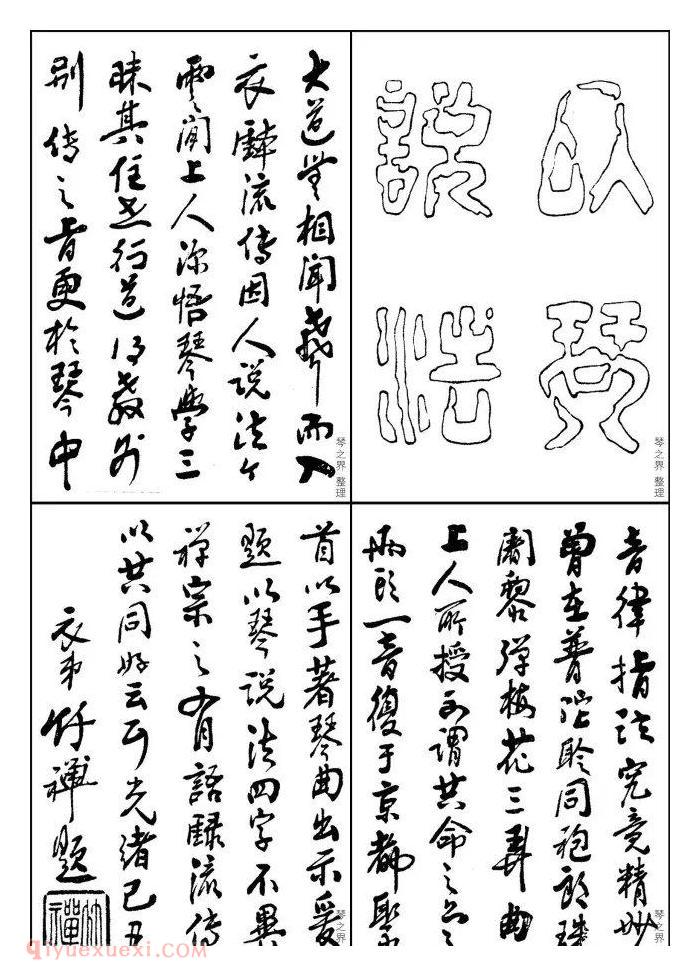 以琴
說法
大道無相聞義而入
衣鉢流傳因人說法
雲閒上人深悟琴學三
昧其住世行道得教外
別傳之旨更於琴中
音律指法究竟精妙
曾在普陀聆同袍朗珠
闍黎彈梅花三弄曲
上人所授可謂共命之
兩頭一音復于京都聚
首以手著琴曲出示爰
題以琴說法四字不異
禪宗之有語錄流傳
以共同好云爾光緒己丑
衣弟竹禪題
竹禪
琴之界 整理
琴之界 整理
琴之界
琴之界
qiyuexuexi.com